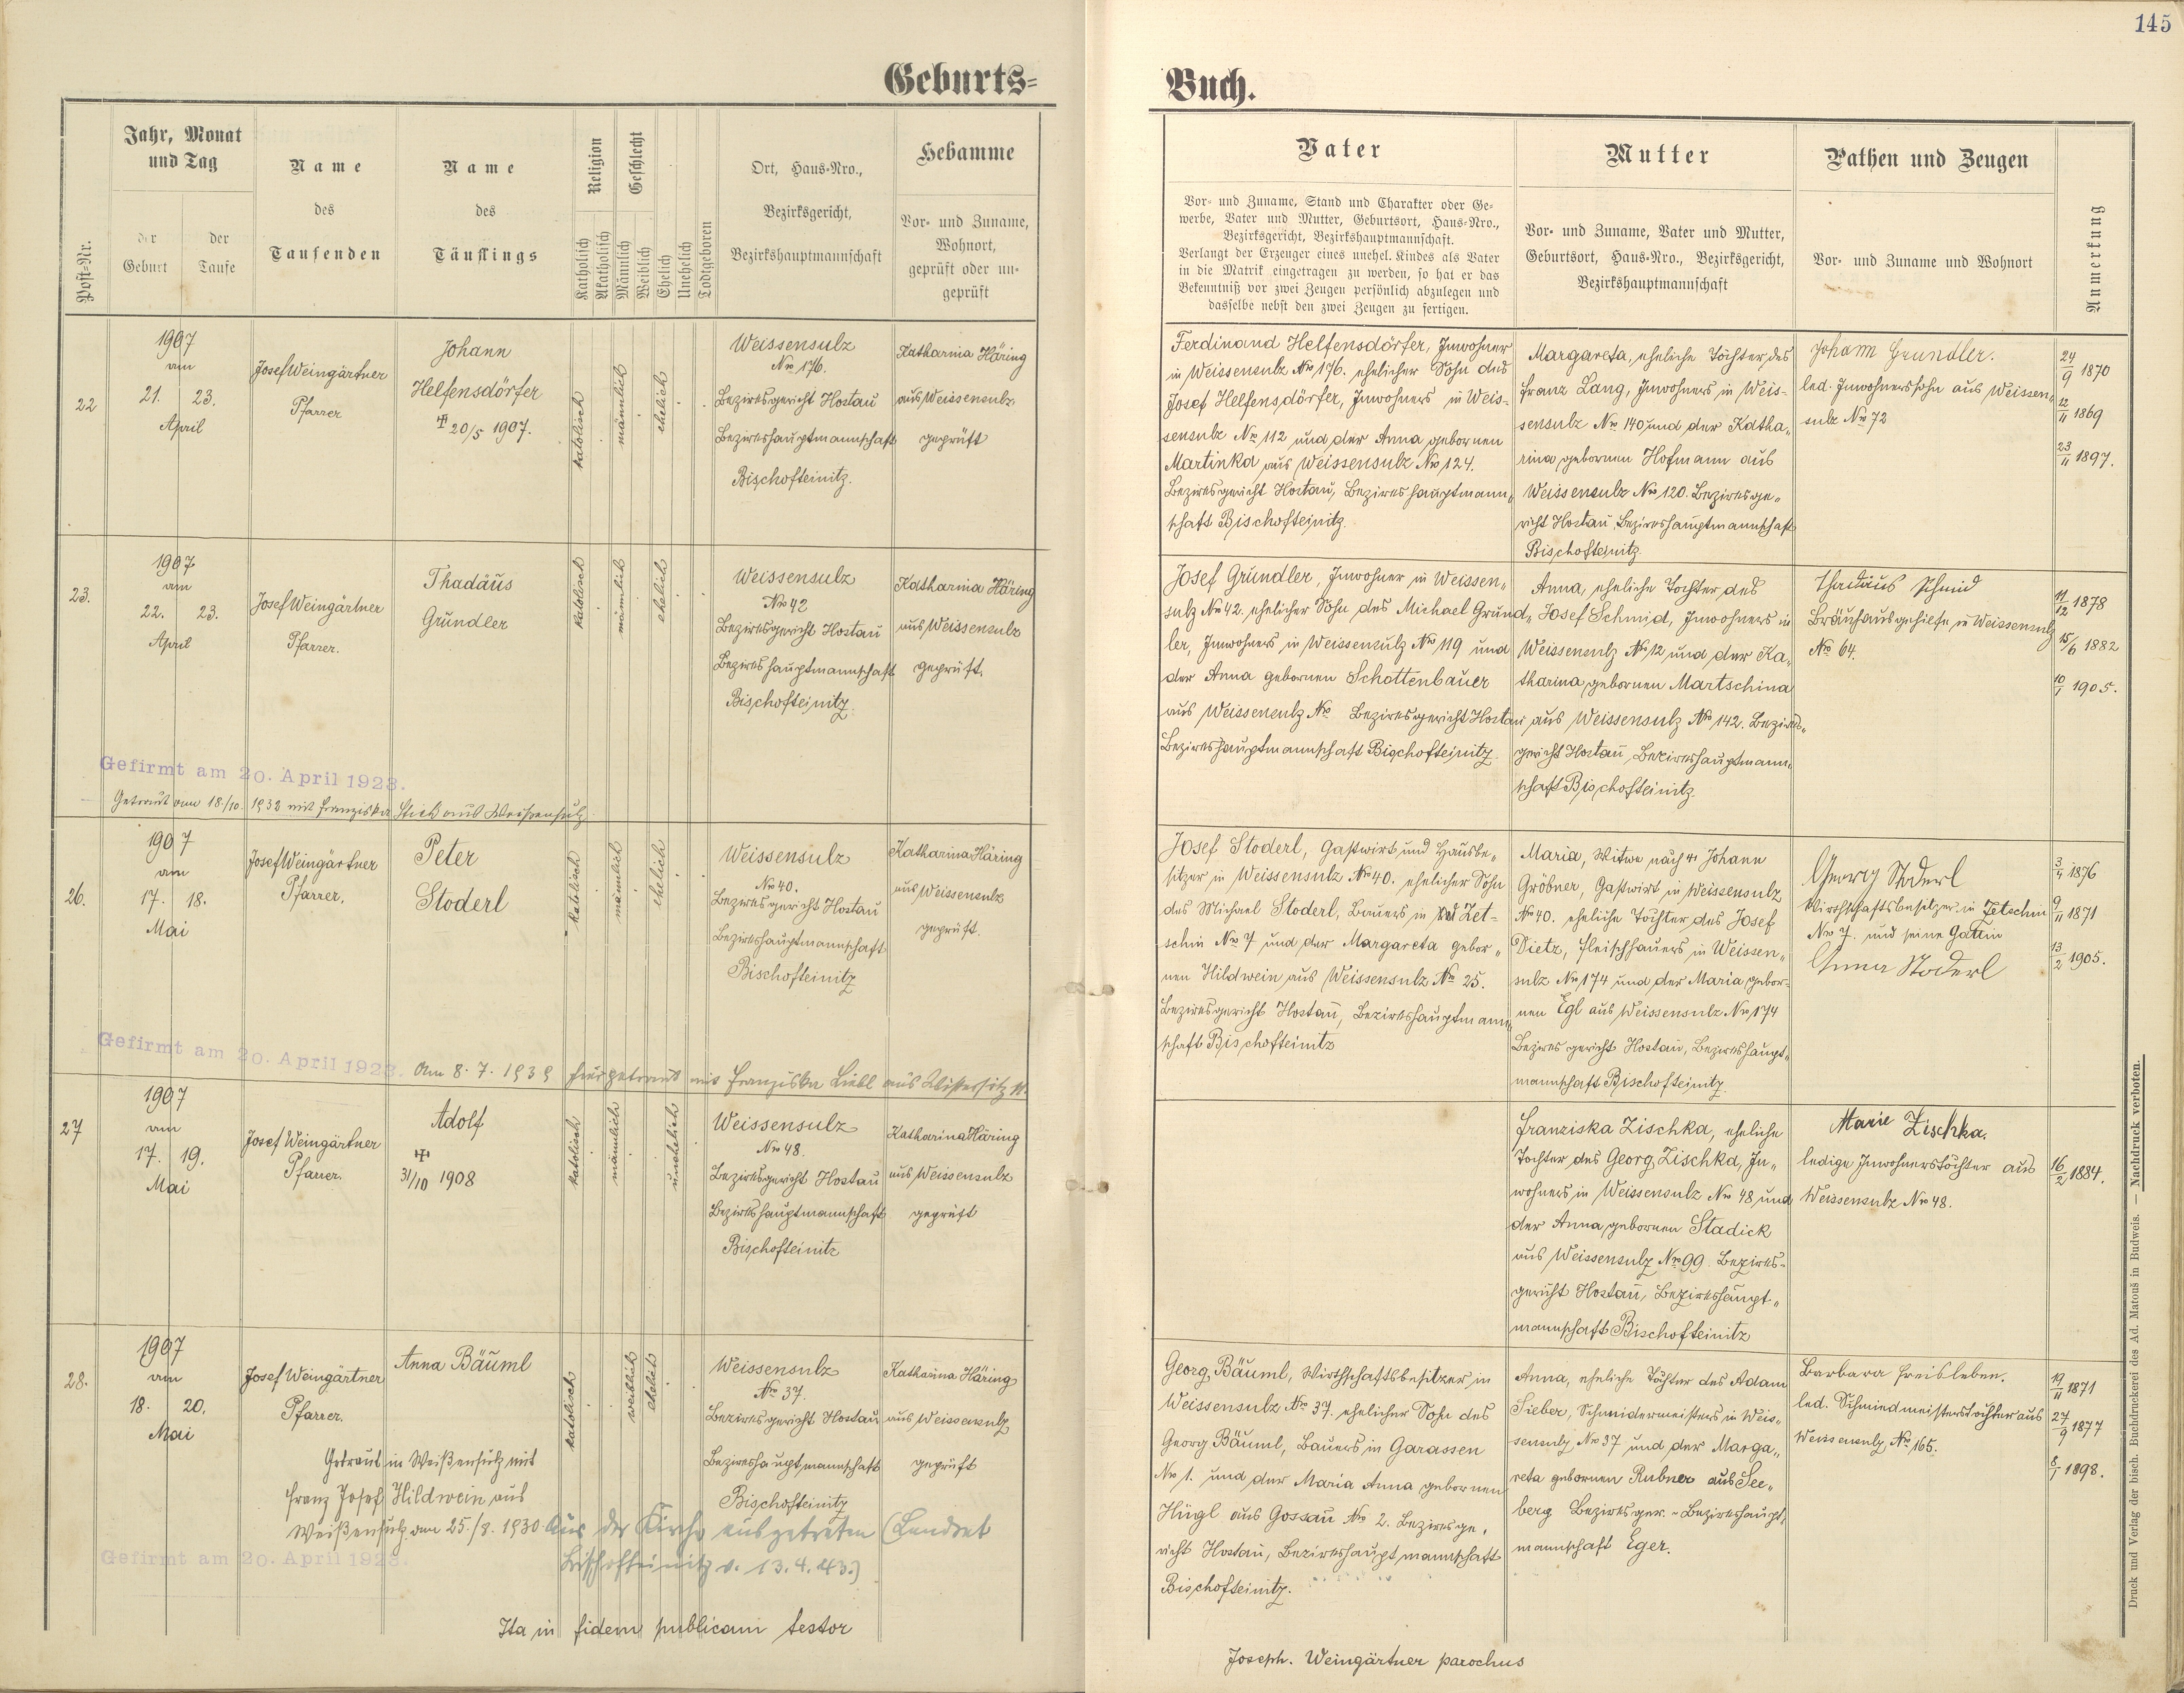 145
Geburts-
Buch.
Post-Nr.
Jahr, Monat
und Tag
der
Geburt
der
Taufe
Name
des
Taufenden
Name
des
Täuflings
Religion
Katholisch
Akatholisch
Geschlecht
Männlich
Weiblich
Ehelich
Unehelich
Todtgeboren
Ort, Haus-Nro.,
Bezirksgericht,
Bezirkshauptmannschaft
Hebamme
Vor- und Zuname,
Wohnort,
geprüft oder un-
geprüft
Vater
Vor- und Zuname, Stand und Charakter oder Ge-
werbe, Vater und Mutter, Geburtsort, Haus-Nro.,
Bezirksgericht, Bezirkshauptmannschaft.
Verlangt der Erzeuger eines unehel. Kindes als Vater
in die Matrik eingetragen zu werden, so hat er das
Bekenntniß vor zwei Zeugen persönlich abzulegen und
dasselbe nebst den zwei Zeugen zu fertigen.
Mutter
Vor- und Zuname, Vater und Mutter,
Geburtsort, Haus-Nro., Bezirksgericht,
Bezirkshauptmannschaft
Pathen und Zeugen
Vor- und Zuname und Wohnort
Anmerkung
22
1907
am
21. 23.
April
Josef Weingärtner
Pfarrer
Johann
Helfensdörfer
✝ 20/5 1907.
katolisch
männlich
ehelich
Weissensulz
Nro 176.
Bezirksgericht Hostau
Bezirkshauptmannschaft
Bischofteinitz.
Katharina Häring
aus Weissensulz
geprüft
Ferdinand Helfensdörfer, Inwohner
in Weissensulz Nro 176. ehelicher Sohn des
Josef Helfensdörfer, Inwohners in Weis-
sensulz Nro 112 und der Anna gebornen
Martinka aus Weissensulz Nro 124.
Bezirksgericht Hostau, Bezirkshauptmann„
schaft Bischofteinitz.
Margareta, eheliche Tochter des
Franz Lang, Inwohners in Weis-
sensulz Nro 140 und der Katha„
rina gebornen Hofmann aus
Weissensulz Nro 120. Bezirksge„
richt Hostau, Bezirkshauptmannschaft
Bischofteinitz.
Johann Grundler.
led. Inwohnerssohn aus Weissen„
sulz Nro 72
24/9 1870
12/11 1869
23/11 1897.
23.
1907
am
22. 23.
April
Josef Weingärtner
Pfarrer.
Thadäus
Gründler
katolisch
männlich
ehelich
Weissensulz
Nro 42
Bezirksgericht Hostau
Bezirkshauptmannschaft
Bischofteinitz.
Katharina Häring
aus Weissensulz
geprüft.
Josef Gründler, Inwohner in Weissen„
sulz Nro 42. ehelicher Sohn des Michael Gründ„
ler, Inwohners in Weissensulz Nro 119 und
der Anna gebornen Schottenbauer
aus Weissensulz Nro Bezirksgericht Hostau
Bezirkshauptmannschaft Bischofteinitz.
Anna, eheliche Tochter des
Josef Schmid, Inwohners in
Weissensulz Nro 12 und der Ka„
tharina gebornen Martschina
aus Weissensulz Nro 142. Bezirks„
gericht Hostau, Bezirkshauptmann„
schaft Bischofteinitz.
Thadäus Schmid
Bräuhausgehilfe in Weissensulz
Nro 64.
11/12 1878
15/6 1882
10/1 1905.
Gefirmt am 20. April 1923.
Getraut am 18./10. 1932 mit Franziska Stich aus Weißensulz
26.
1907
am
17. 18.
Mai
Josef Weingärtner
Pfarrer.
Peter
Stoderl
katolisch
männlich
ehelich
Weissensulz
Nro 40.
Bezirksgericht Hostau
Bezirkshauptmannschaft
Bischofteinitz
Katharina Häring
aus Weissensulz
geprüft.
Josef Stoderl, Gastwirt und Hausbe„
sitzer in Weissensulz Nro 40. ehelicher Sohn
des Michael Stoderl, Bauers in Zet-
schin Nro 7 und der Margareta gebor„
nen Hildwein aus Weissensulz Nro 25.
Bezirksgericht Hostau, Bezirkshauptmann„
schaft Bischofteinitz
Maria, Witwe nach ✝ Johann
Gröbner, Gastwirt in Weissensulz
Nro 40. eheliche Tochter des Josef
Dietz, Fleischhauers in Weissen„
sulz Nro 174 und der Maria gebor-
nen Egl aus Weissensulz Nro 174
Bezirksgericht Hostau, Bezirkshaupt„
mannschaft Bischofteinitz.
Georg Stoderl
Wirthschaftsbesitzer in Zetschin
Nro 7. und seine Gattin
Anna Stoderl
3/4 1876
9/11 1871
13/2 1905.
Gefirmt am 20. April 1923.
Am 8. 7. 1939 hier getraut mit Franziska Liebl aus
27
1907
am
17. 19.
Mai
Josef Weingärtner
Pfarrer.
Adolf
✝
31/10 1908
katolisch
männlich
unehelich
Weissensulz
Nro 48.
Bezirksgericht Hostau
Bezirkshauptmannschaft
Bischofteinitz
Katharina Häring
aus Weissensulz
geprüft
Franziska Zischka, eheliche
Tochter des Georg Zischka, In„
wohners in Weissensulz Nro 48 und
der Anna gebornen Stadick
aus Weissensulz Nro 99. Bezirks-
gericht Hostau, Bezirkshaupt„
mannschaft Bischofteinitz
Marie Zischka.
ledige Inwohnerstochter aus
Weissensulz Nro 48.
16/2 1884.
28.
1907
am
18. 20.
Mai
Josef Weingärtner
Pfarrer.
Anna Bäuml
katolisch
weiblich
ehelich
Weissensulz
Nro 37.
Bezirksgericht Hostau
Bezirkshauptmannschaft
Bischofteinitz
Katharina Häring
aus Weissensulz
geprüft
Georg Bäuml, Wirthschaftsbesitzer in
Weissensulz Nro 37. ehelicher Sohn des
Georg Bäuml, Bauers in Garassen
Nro 1. und der Maria Anna gebornen
Hügl aus Gossau Nro 2. Bezirksge„
richt Hostau, Bezirkshauptmannschaft
Bischofteinitz.
Anna, eheliche Tochter des Adam
Sieber, Schneidermeisters in Weis„
sensulz Nro 37 und der Marga„
reta gebornen Rubner aus See„
berg Bezirksger. - Bezirkshaupt„
mannschaft Eger.
Barbara Freisleben.
led. Schmiedmeisterstochter aus
Weissensulz Nro 165.
19/11 1871
27/9 1877
8/1 1898.
Getraut in Weißensulz mit
Franz Josef Hildwein aus
Weißensulz am 25./8. 1930
Aus der Kirche ausgetreten (Landrat
Bischofteinitz v. 13.4.43.)
Gefirmt am 20. April 1923.
Ita in fidem publicam testor
Joseph. Weingärtner parochus
Druck und Verlag der bisch. Buchdruckerei des Ad. Matouš in Budweis. — Nachdruck verboten.